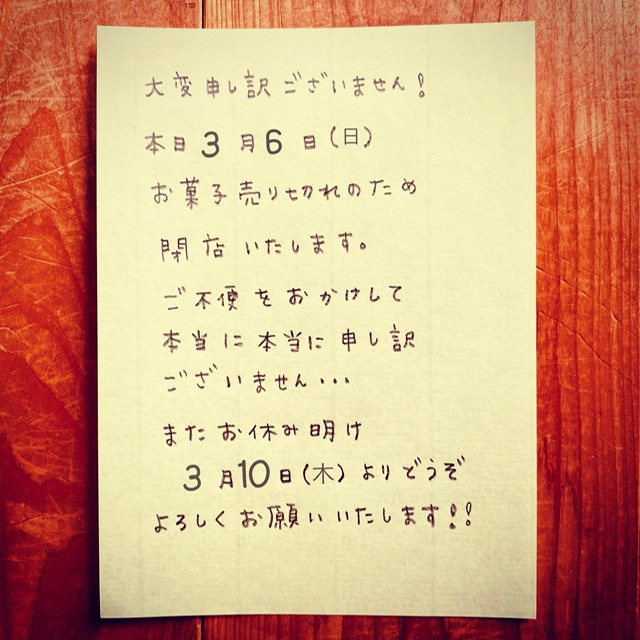 大変申し訳ございません!
本日3月6日(日)
お菓子売り切れのため
閉店いたします。
ご不便をおかけして
本当に本当に申し訳
ございません...
またお休み明け
3月10日(木)よりどうぞ
よろしくお願いいたします!!